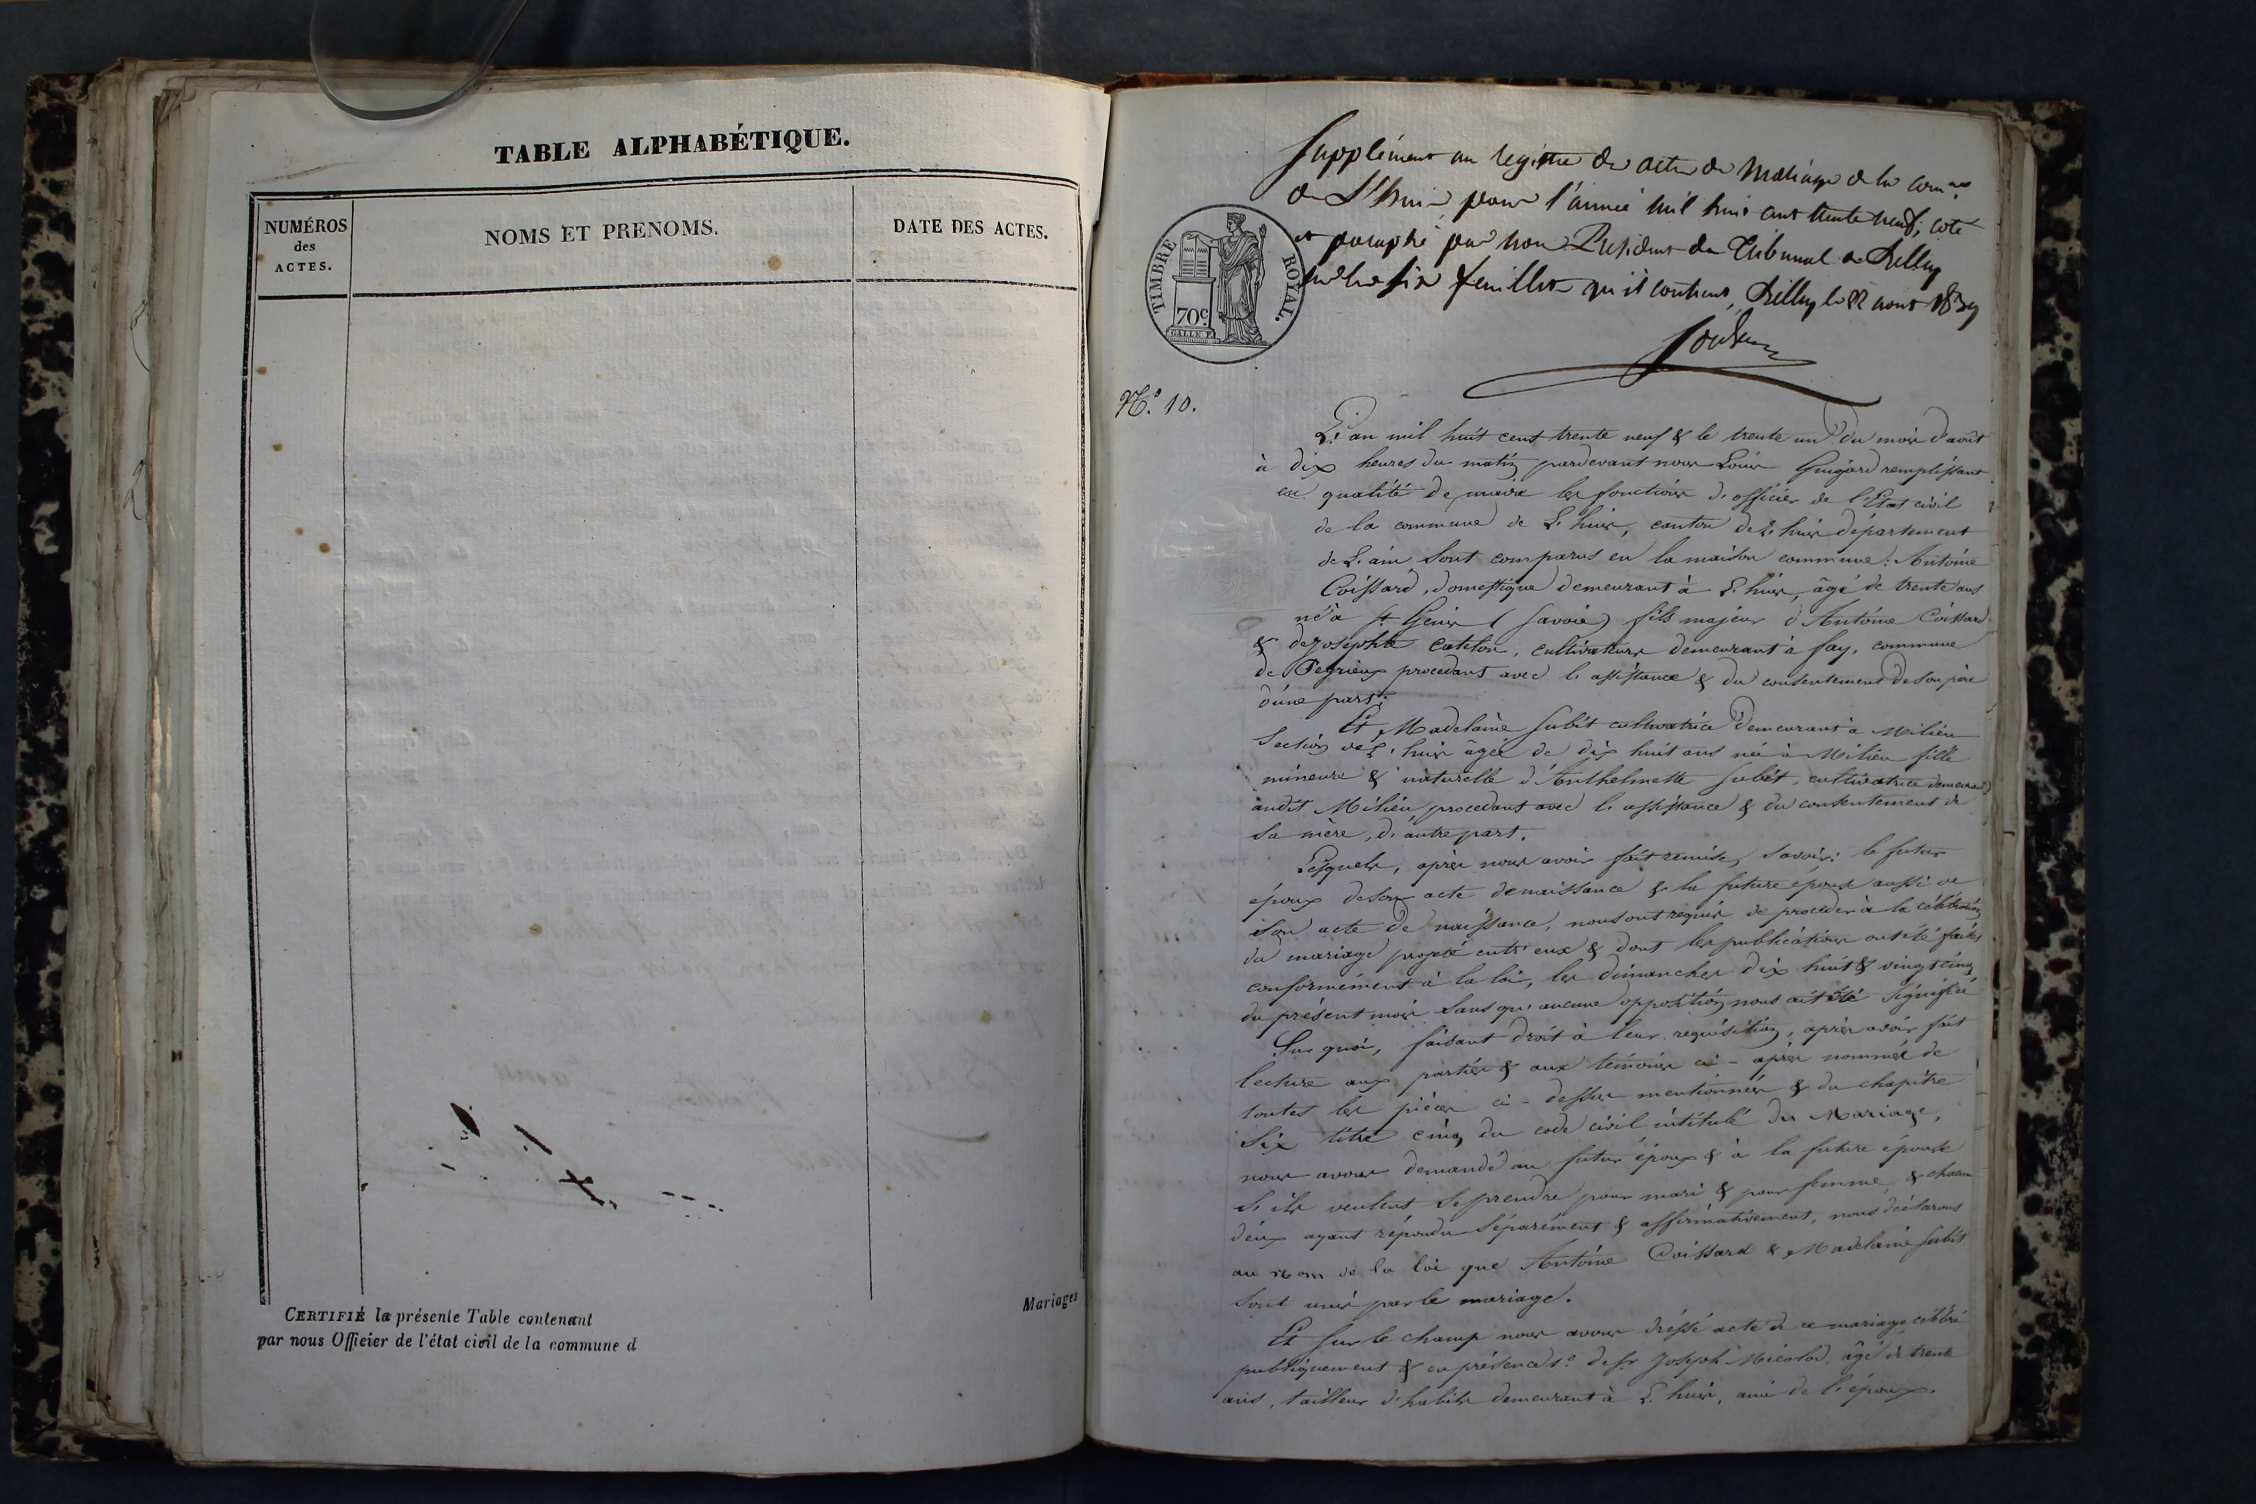 TABLE ALPHABÉTIQUE.
NUMÉROS
des
ACTES.
NOMS ET PRENOMS.
DATE DES ACTES.
CERTIFIÉ la présente Table contenant
par nous Officier de l'état civil de la commune d
Mariages
Supplément au registre des actes de Mariage de la comne
de L'huis pour l'année mil huit cent trente neuf, coté
et paraphé par nous Président du Tribunal de Belley
sur les six feuillets qu'il contient, Belley le 22 aout 1839
TIMBRE ROYAL.
70c
N.º 10.
L'an mil huit cent trente neuf & le trente un du mois d'août
à dix heures du matin pardevant nous Louis Guigard remplissant
en qualité de maire les fonctions d'officier de l'Etat civil
de la commune de L'huis, canton de L'huis département
de L'ain sont comparus en la maison commune: Antoine
Coissard, domestique demeurant à L'huis, âgé de trente ans
né à St Genis (Savoie) fils majeur d'Antoine Coissard
& de Josephte Catelon, cultivateurs demeurant à fay, commune
de Peyrieux procedant avec l'assistance & du consentement de son père
d'une part;
Et Madelaine Subit cultivatrice demeurant à Milieu
section de L'huis âgée de dix huit ans née à Milieu fille
mineure & naturelle d'Anthelmette Subit, cultivatrice demeurant
audit Milieu, procedant avec l'assistance & du consentement de
sa mère, d'autre part.
Lesquels, après nous avoir fait remise, savoir: le futur
époux de son acte de naissance & la future épouse aussi de
son acte de naissance, nous ont requis de proceder à la célébration
du mariage projeté entr'eux & dont les publications ont été faites
conformément à la loi, les dimanches dix huit & vingt cinq
du présent mois sans qu'aucune opposition nous ait été signifiée
Sur quoi, faisant droit à leur requisition, après avoir fait
lecture aux parties & aux témoins ci-après nommés de
toutes les pièces ci-dessus mentionnées & du chapitre
six titre cinq du code civil intitulé du Mariage,
nous avons demandé au futur époux & à la future épouse
s'ils veulent se prendre pour mari & pour femme, & chacun
d'eux ayant répondu séparément & affirmativement, nous déclarons
au nom de la loi que Antoine Coissard & Madelaine Subit
sont unis par le mariage.
Et sur le champ nous avons dréssé acte de ce mariage célébré
publiquement & en présence 1º de Sr Joseph Micolod, âgé de trente
ans, tailleur d'habits demeurant à L'huis, ami de l'époux.